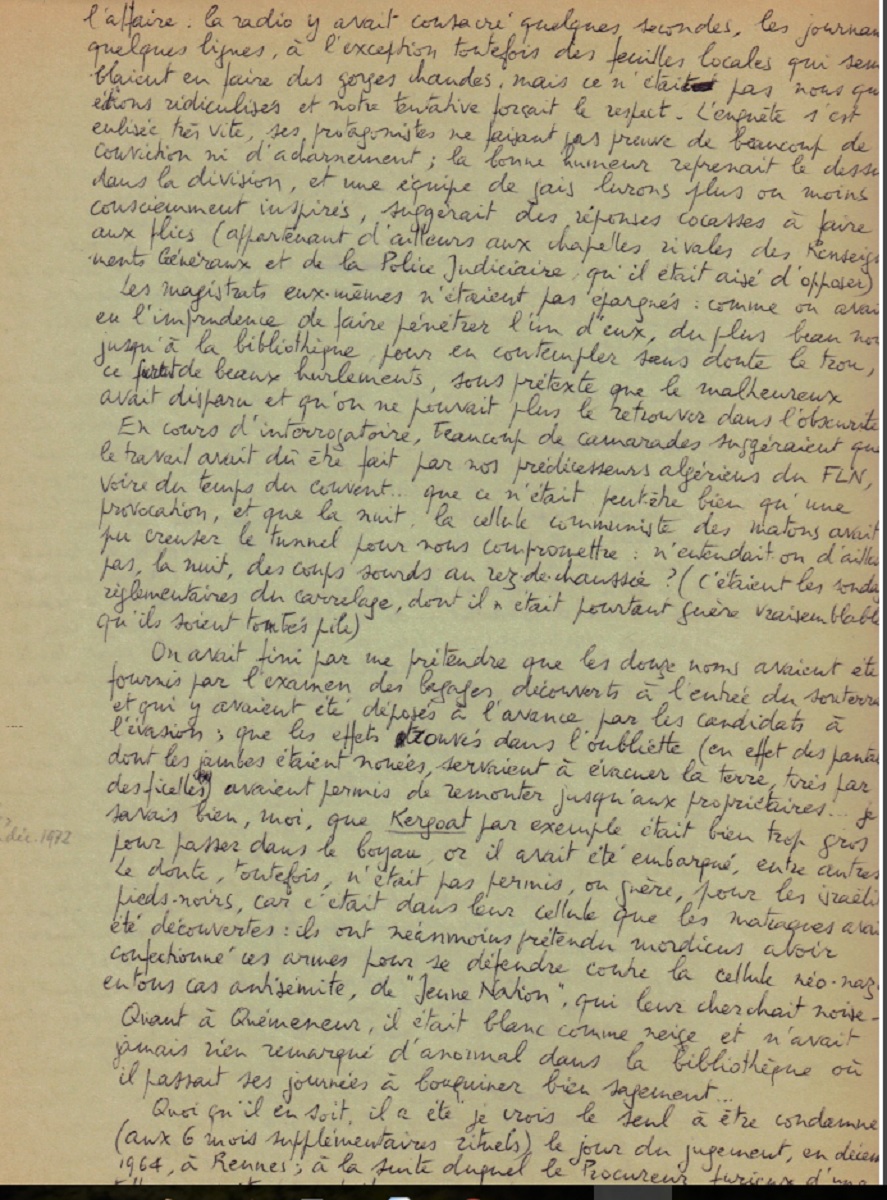 l'affaire. la radio y avait consacré quelques secondes, les journau
quelques lignes, à l'exception toutefois des feuilles locales qui sem
blaient en faire des gorges chaudes. mais ce n'était pas nous qu
étions ridiculisés et notre tentative forçait le respect. L'enquête s'est
enlisée très vite, ses protagonistes ne faisant pas preuve de beaucoup de
conviction ni d'acharnement ; la bonne humeur reprenait le dessu
dans la division, et une équipe de gais lurons plus ou moins
consciemment inspirés, suggérait des réponses cocasses à faire
aux flics (appartenant d'ailleurs aux chapelles rivales des Renseign
nents Généraux et de la Police Judiciaire, qu'il était aisé d'opposer)
Les magistrats eux-mêmes n'étaient pas épargnés : comme on avai
eu l'imprudence de faire pénétrer l'un d'eux, du plus beau noi
jusqu'à la bibliothèque pour en contempler sans doute le trou,
ce fut de beaux hurlements, sous prétexte que le malheureux
avait disparu et qu'on ne pouvait plus le retrouver dans l'obscurité
En cours d'interrogatoire, beaucoup de camarades suggéraient que
le travail avait dû être fait par nos prédécesseurs algériens du FLN,
voire du temps du couvent... que ce n'était peut-être bien qu'une
provocation, et que la nuit, la cellule communiste des matons avait
pu creuser le tunnel pour nous compromettre : n'entendait-on d'aille
pas, la nuit, des coups sourds au rez-de-chaussée ? (C'étaient les sonda
réglementaires du carrelage, dont il n'était pourtant guère vraisemblable
qu'ils soient tombés pile)
On avait fini par me prétendre que les douze noms avaient été
fournis par l'examen des bagages découverts à l'entrée du souterra
et qui y avaient été déposés à l'avance par les candidats à
l'évasion ; que les effets trouvés dans l'oubliette (en effet des panta
dont les jambes étaient nouées, servaient à évacuer la terre, tirés par
des ficelles) avaient permis de remonter jusqu'aux propriétaires... je
savais bien, moi, que Kergoat par exemple était bien trop gros
déc. 1972
pour passer dans le boyau, or il avait été embarqué, entre autres
Le doute, toutefois, n'était pas permis, ou guère, pour les israéli
pieds-noirs, car c'était dans leur cellule que les matraques avai
été découvertes : ils ont néanmoins prétendu mordicus avoir
confectionné ces armes pour se défendre contre la cellule néo-naz
en tous cas antisémite, de "Jeune Nation", qui leur cherchait noise.
Quant à Quémeneur, il était blanc comme neige et n'avait
jamais rien remarqué d'anormal dans la bibliothèque où
il passait ses journées à bouquiner bien sagement...
Quoi qu'il en soit, il a été je crois le seul à être condamné
(aux 6 mois supplémentaires rituels) le jour du jugement, en décem
1964, à Rennes ; à la suite duquel le Procureur furieux d'une